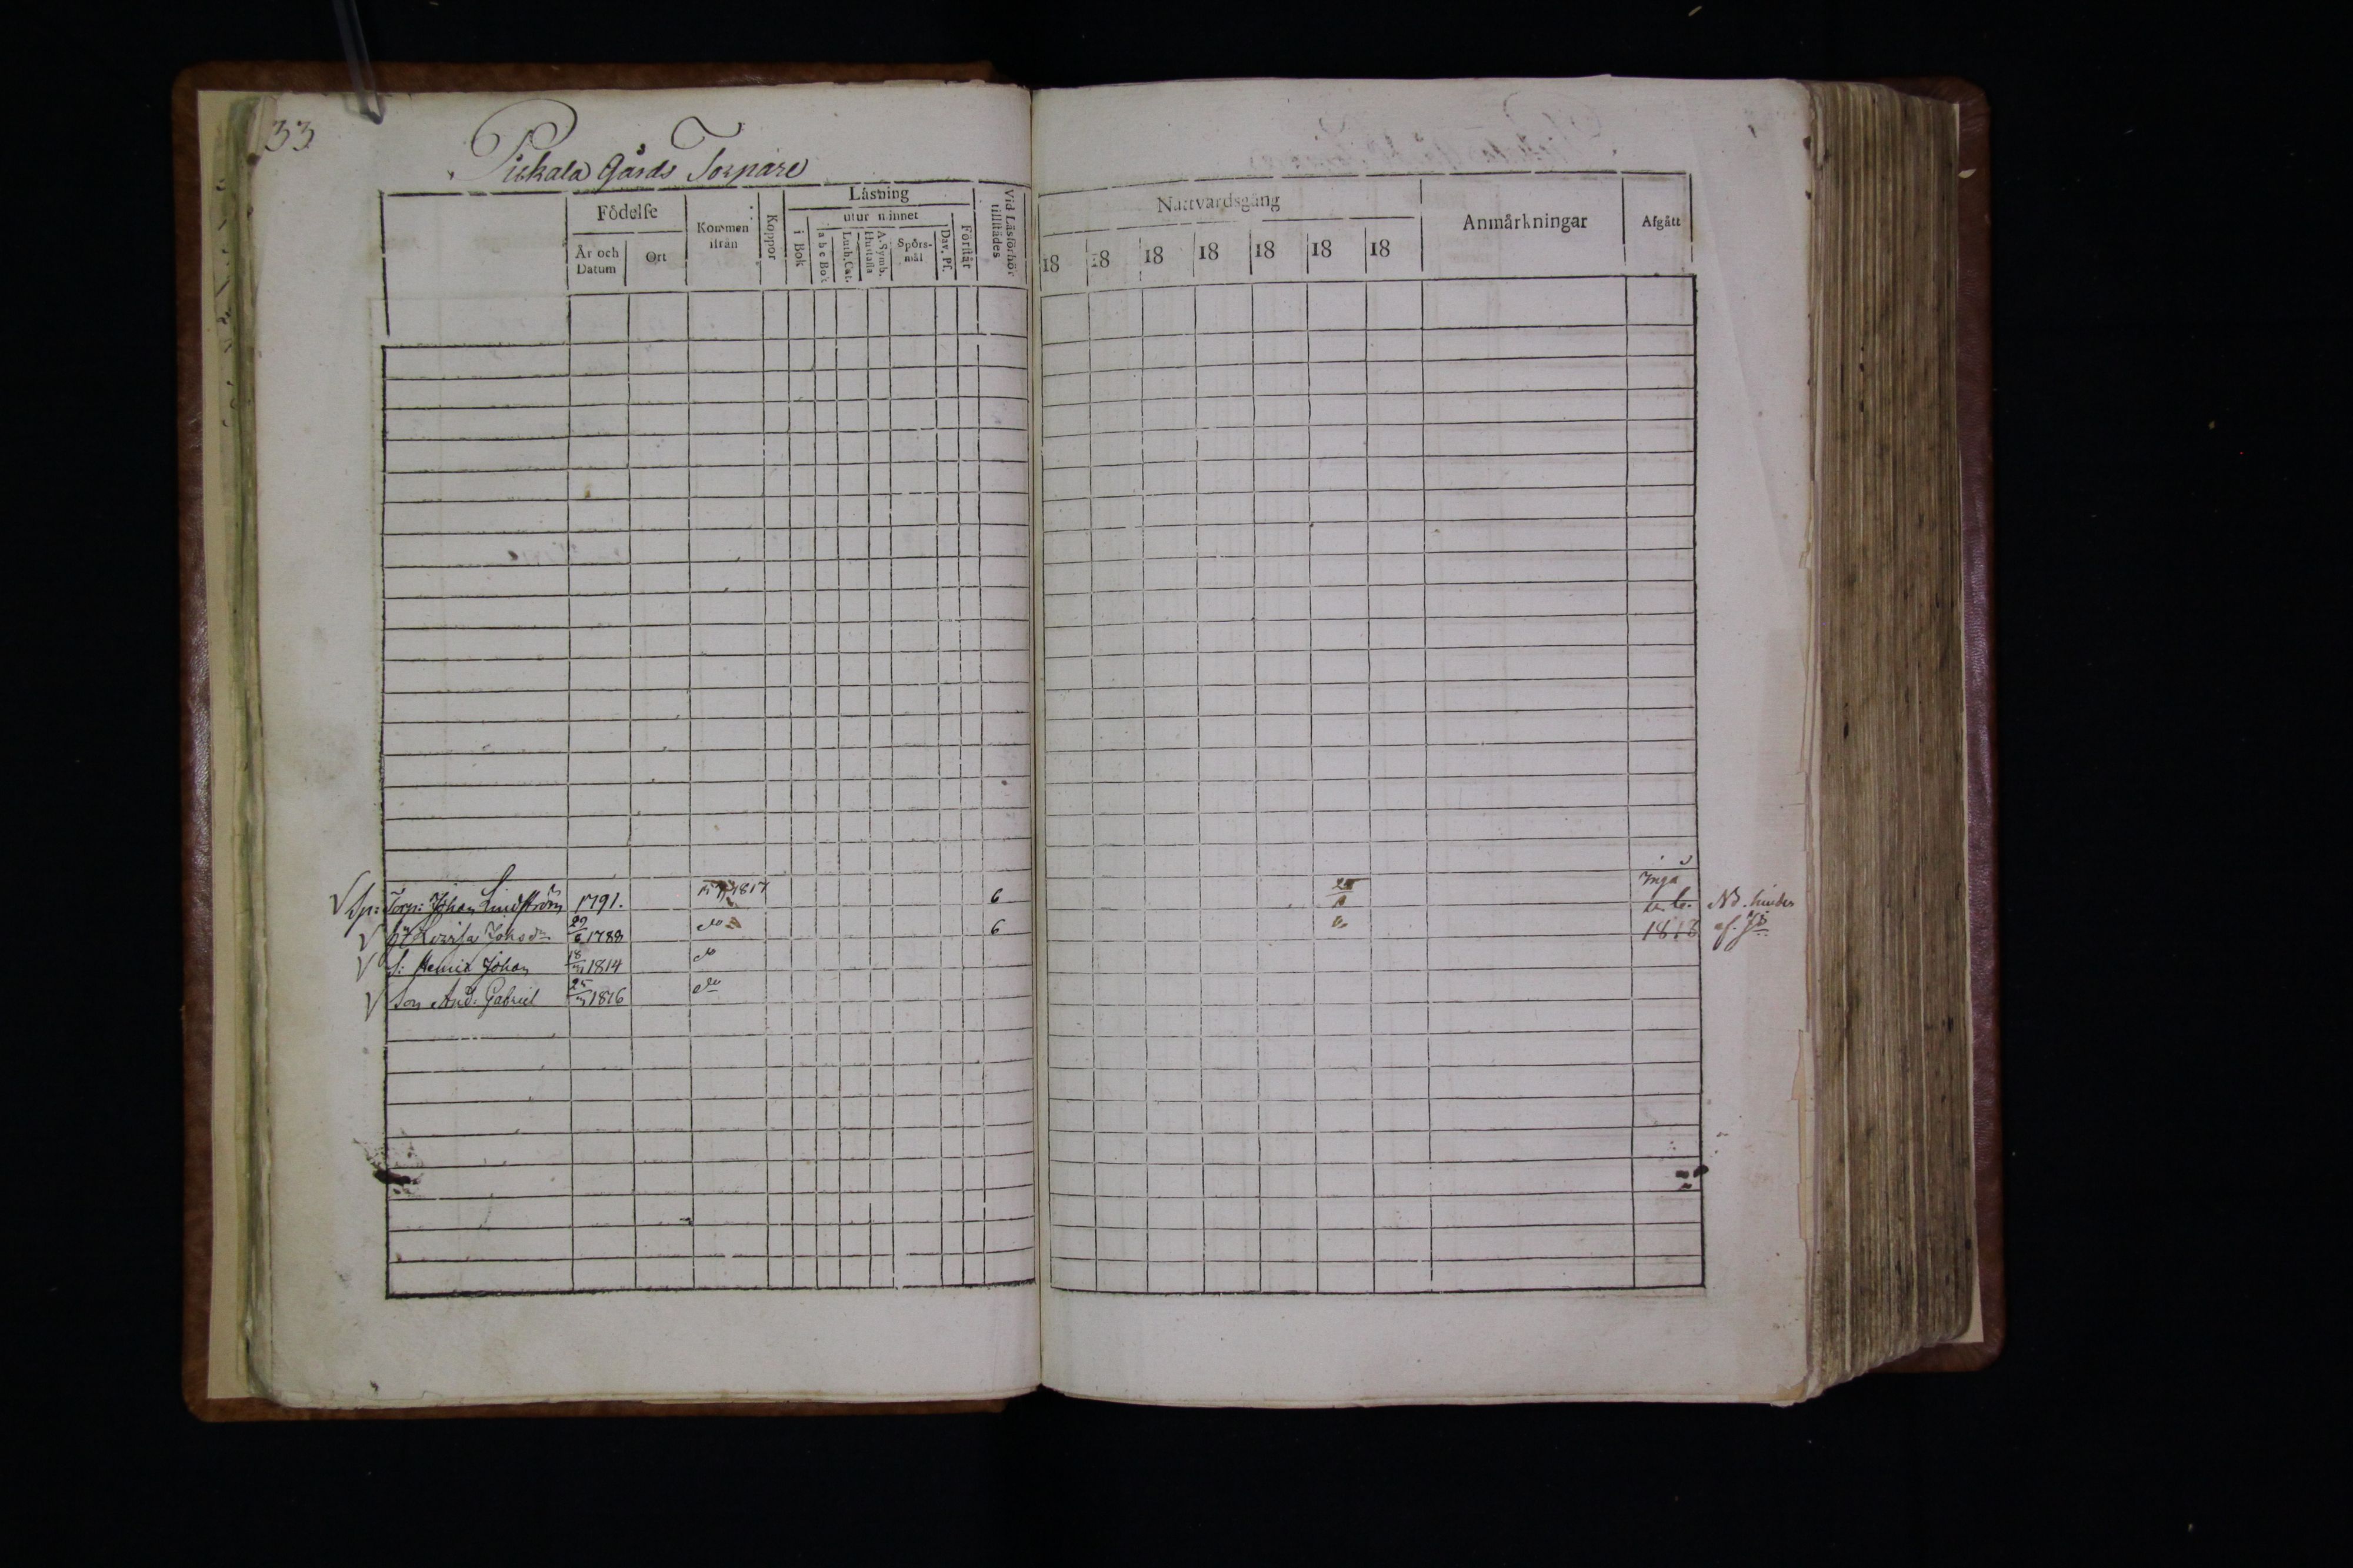 33
Pickala Gårds Torpare
Födelse
År och Datum
Ort
Kommen ifrån
Koppor
Läsning
i Bok
utur minnet
a b c Bok
Luth. Cat.
A. Symb. Hustafla
Spörs-mål
Dav. Ps.
Förstår
Vid Läsförhör tillstädes
Nattvardsgång
18 18 18 18 18 18 18
Anmärkningar
Afgått
Torp: Johan Lindström 1791. 1817 6 Inga
H: Lovisa Johsdr 29/6 1788 do 6 1818
S: Henric Johan 18/ 1814 do
Son And: Gabriel 25/ 1816 do
NB. hinder
af